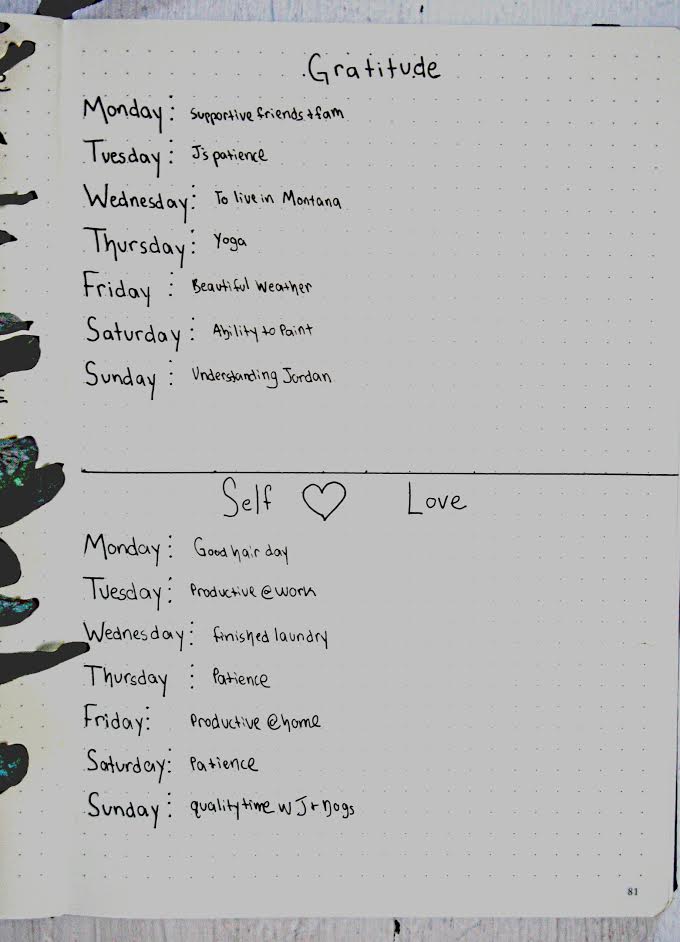 Gratitude
Monday: Supportive friends + fam
Tuesday: J's patience
Wednesday: To live in Montana
Thursday: Yoga
Friday: Beautiful Weather
Saturday: Ability to Paint
Sunday: Understanding Jordan
Self ♡ Love
Monday: Good hair day
Tuesday: Productive @ work
Wednesday: finished laundry
Thursday: Patience
Friday: Productive @ home
Saturday: Patience
Sunday: quality time w J + Dogs
81